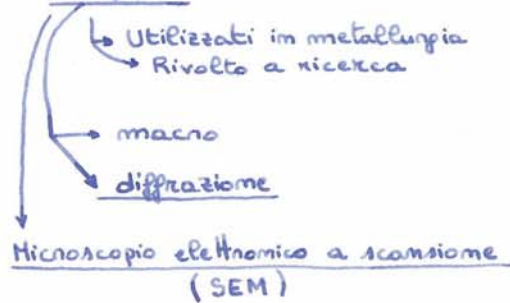 Utilizzati in metallurgia
Rivolto a ricerca
macro
diffrazione
Microscopio elettronico a scansione
(SEM)